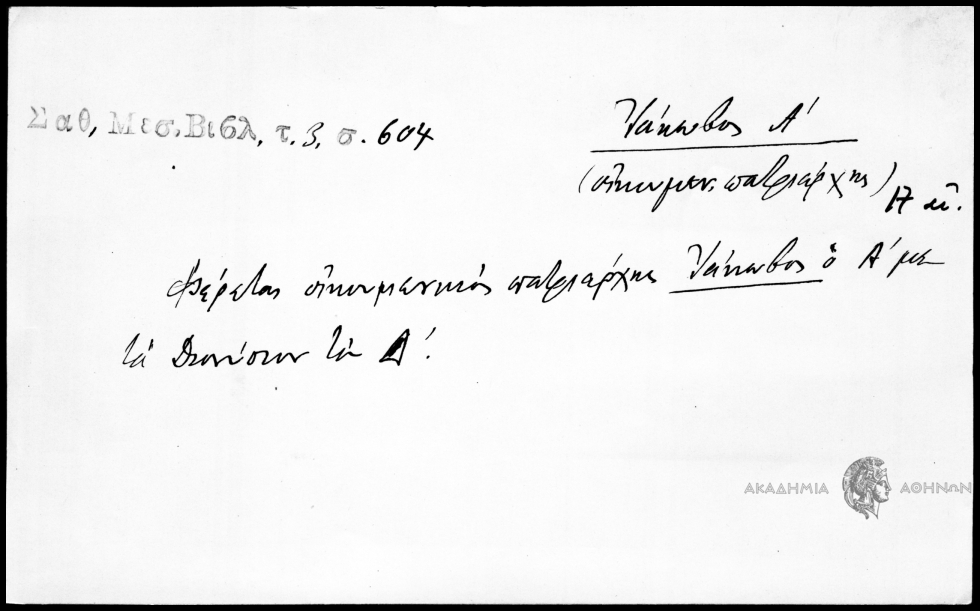 Σαθ, Μεσ. Βιβλ, τ. 3, σ. 604
Ἰάκωβος Α'
(οἰκουμεν. πατριάρχης) 17 αἰ.
Φέρεται οἰκουμενικός πατριάρχης Ἰάκωβος ὁ Α' με
τά Διονύσιον τόν Δ'.
ΑΚΑΔΗΜΙΑ ΑΘΗΝΩΝ